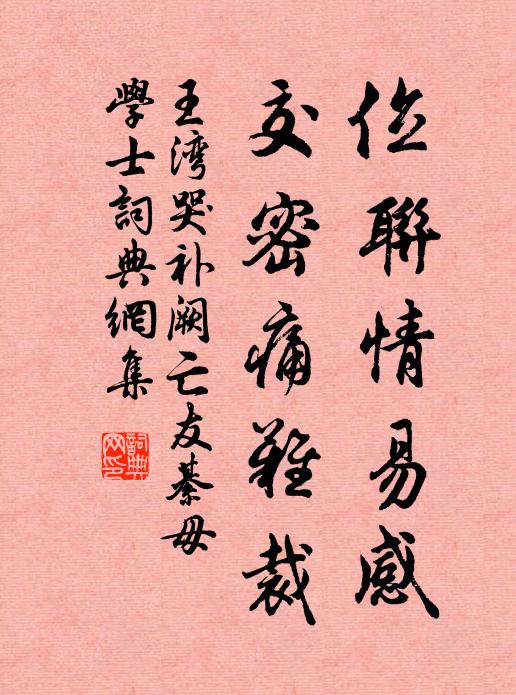 位聯情易感
交密痛難裁
王湾哭补阙亡友綦毋
學士詞典網集
詞典
网印